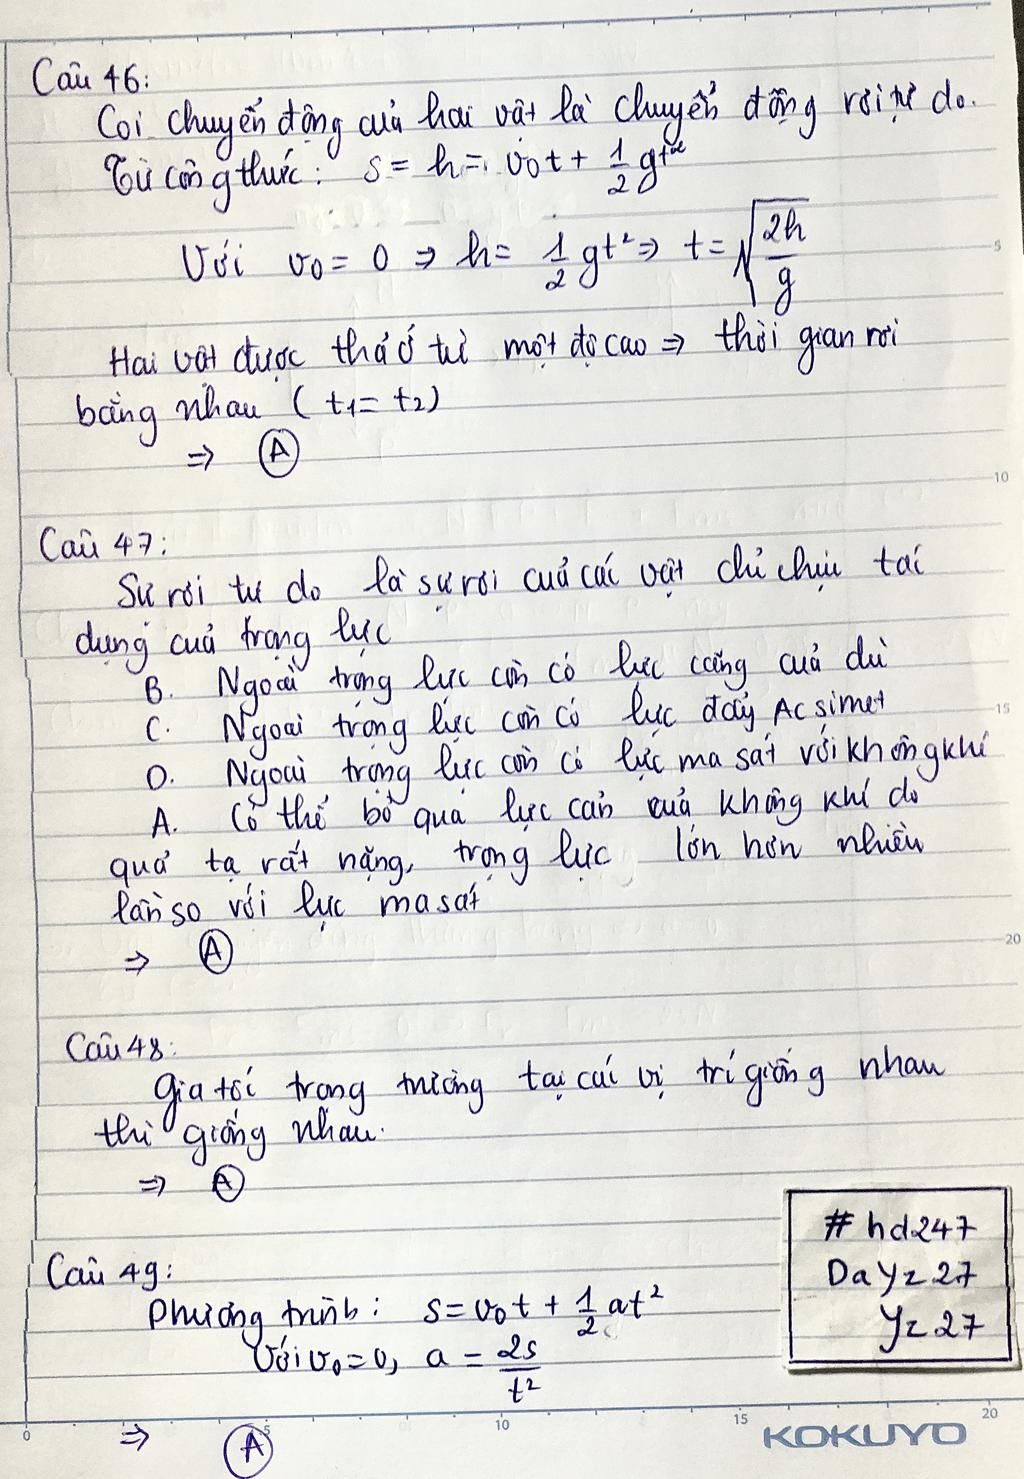 Câu 46:
Coi chuyển động của hai vật là chuyển động rơi tự do.
Từ công thức: s = h = v₀t + 1/2 gt²
Với v₀ = 0 ⇒ h = 1/2 gt² ⇒ t = √(2h/g)
Hai vật được thả ở từ một độ cao ⇒ thời gian rơi
bằng nhau ( t₁ = t₂)
⇒ A
Câu 47:
Sự rơi tự do là sự rơi của các vật chỉ chịu tác
dụng của trọng lực
B. Ngoài trọng lực còn có lực căng của dù
C. Ngoài trọng lực còn có lực đẩy Acsimet
D. Ngoài trọng lực còn có lực ma sát với không khí
A. Có thể bỏ qua lực cản của không khí do
quả tạ rất nặng, trọng lực lớn hơn nhiều
lần so với lực ma sát
⇒ A
Câu 48:
Gia tốc trọng trường tại các vị trí giống nhau
thì giống nhau.
⇒ A
Câu 49:
Phương trình: s = v₀t + 1/2 at²
Với v₀ = 0, a = 2s/t²
⇒ A
# hd247
DaYz27
Yz27
5
10
15
20
0
5
10
15
20
KOKUYO